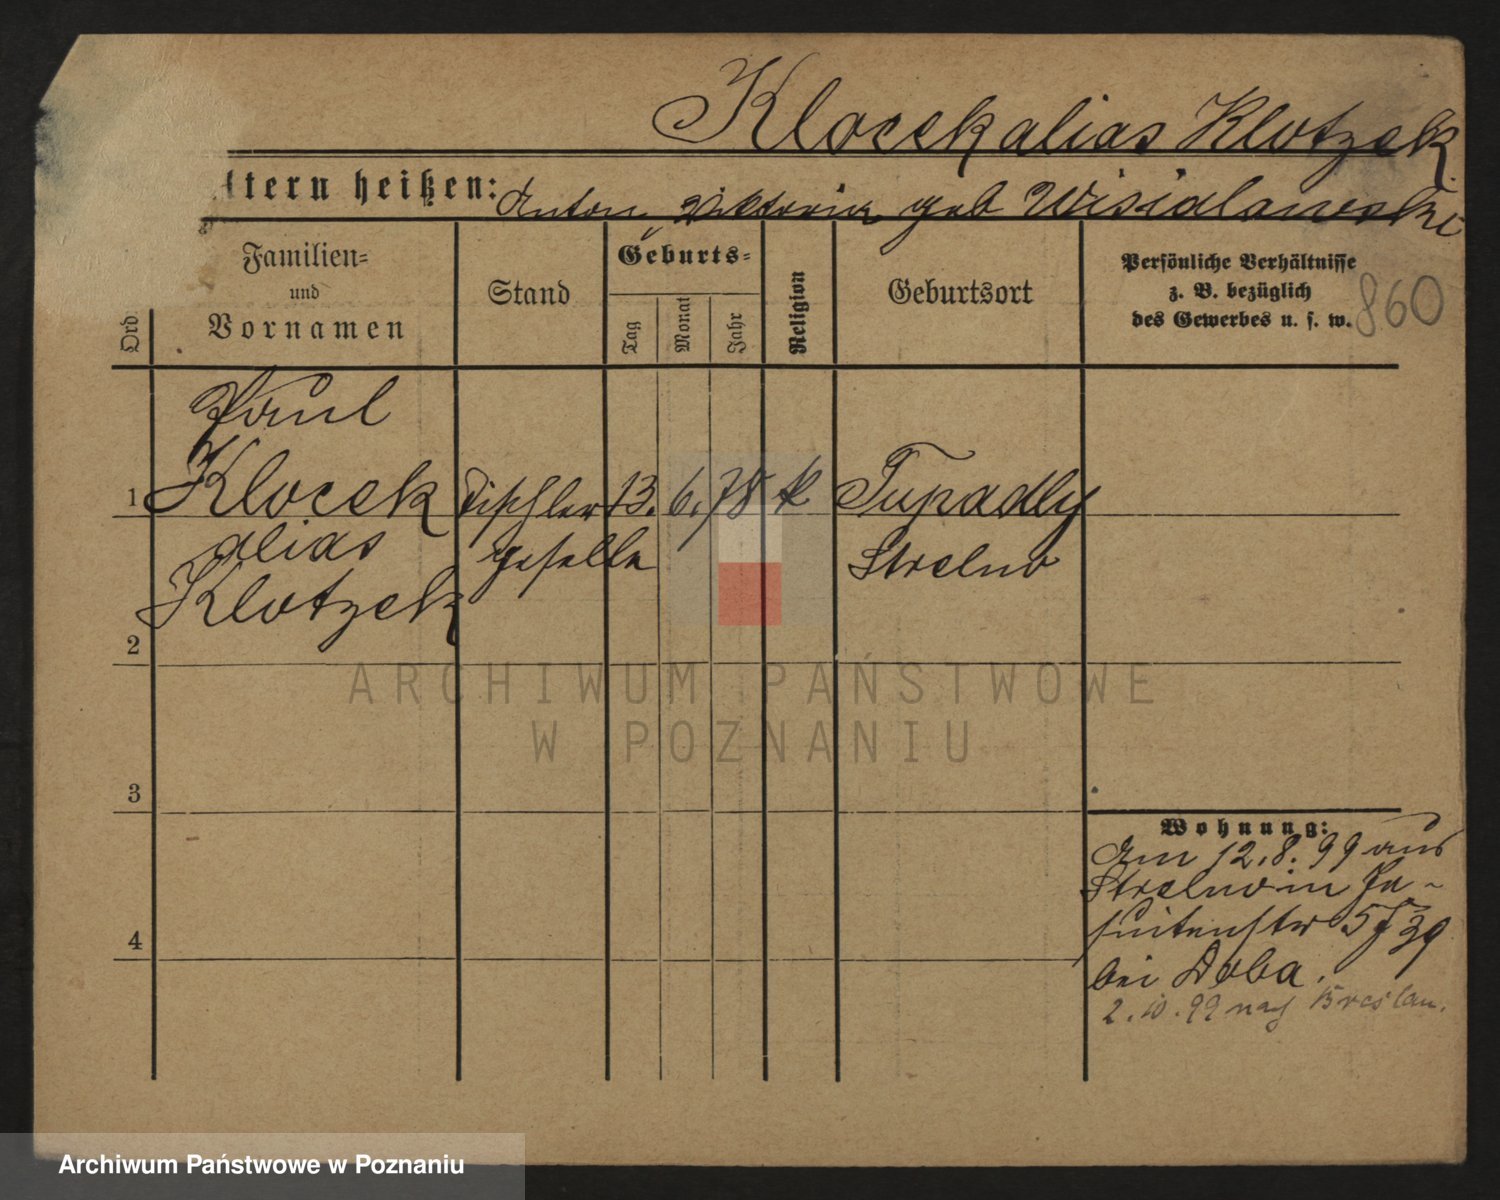 Klocek alias Klotzek
ltern heißen: Anton, Viktoria geb Wisialanoski
Ord.
Familien=
und
Vornamen
Stand
Geburts=
Tag
Monat
Jahr
Religion
Geburtsort
Persönliche Verhältnisse
z. B. bezüglich
des Gewerbes u. s. w.
860
Paul
1 Klocek Tischler 13. 6. 78 k Tupadly
alias geselle Strelno
Klotzek
2
ARCHIWUM PAŃSTWOWE
W POZNANIU
3
Wohnung:
Am 12.8.99 aus
Strelno in Je-
suitenstr 5
4
bei Doba.
2.10.99 nach Breslau.
Archiwum Państwowe w Poznaniu